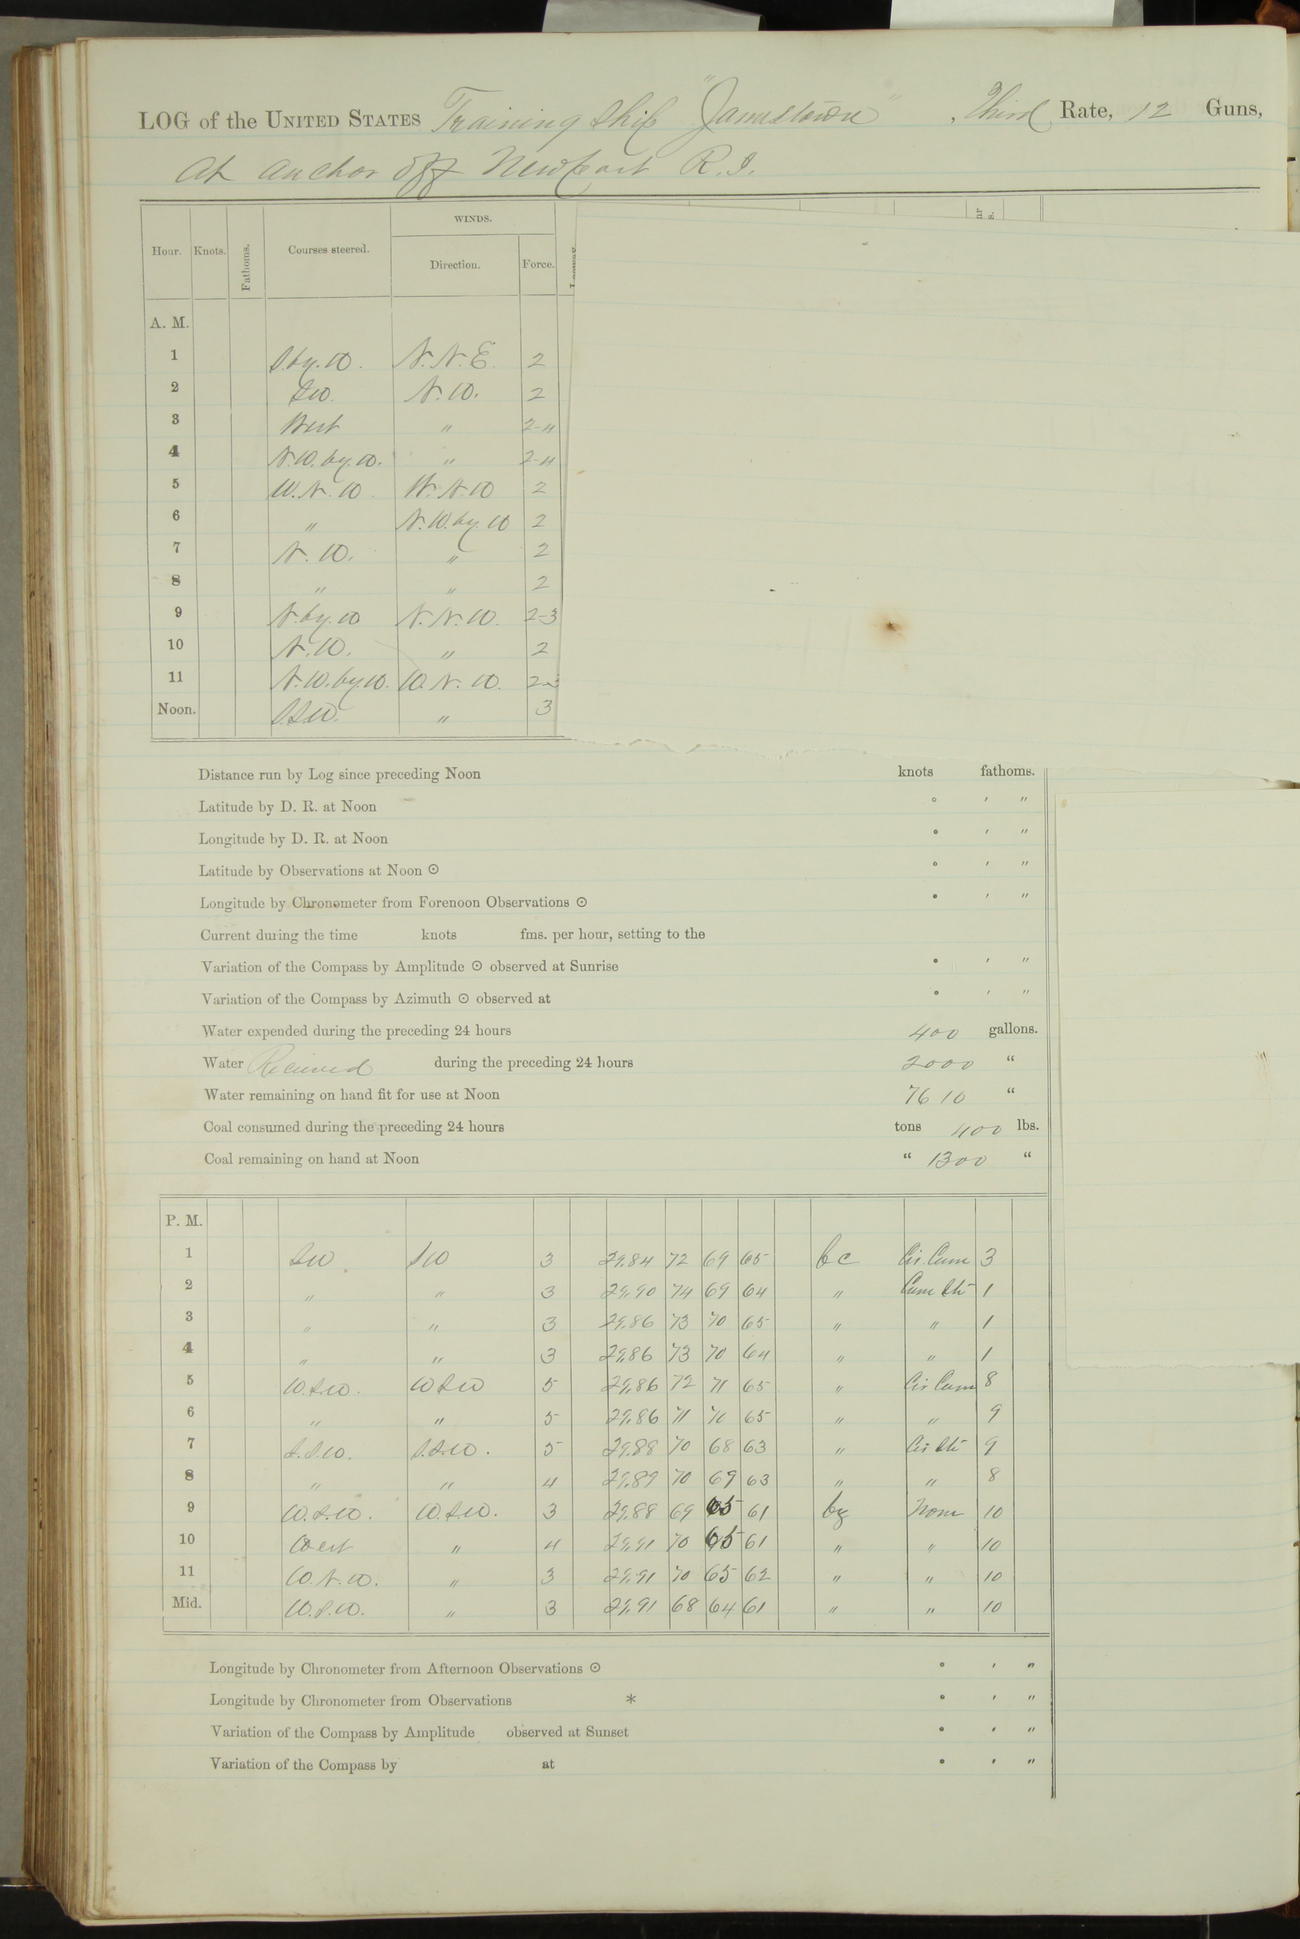 LOG of the UNITED STATES Training Ship "Jamestown", Third Rate, 12 Guns,
At anchor off Newport R.I.
WINDS.
Hour. Knots. Fathoms. Courses steered. Direction. Force.
A. M.
1 S.by.W. N.N.E. 2
2 SW. N.W. 2
3 West " 2-4
4 N.W.by.W. " 2-4
5 W.N.W. W.N.W 2
6 " N.W.by.W 2
7 N.W. " 2
8 " " 2
9 N.by.W N.N.W. 2-3
10 N.W. " 2
11 N.W.by.W. W.N.W. 2-3
Noon. S.S.W. " 3
Distance run by Log since preceding Noon knots fathoms.
Latitude by D. R. at Noon ° ′ ″
Longitude by D. R. at Noon ° ′ ″
Latitude by Observations at Noon ⊙ ° ′ ″
Longitude by Chronometer from Forenoon Observations ⊙ ° ′ ″
Current during the time knots fms. per hour, setting to the
Variation of the Compass by Amplitude ⊙ observed at Sunrise ° ′ ″
Variation of the Compass by Azimuth ⊙ observed at ° ′ ″
Water expended during the preceding 24 hours 400 gallons.
Water Received during the preceding 24 hours 2000 "
Water remaining on hand fit for use at Noon 7610 "
Coal consumed during the preceding 24 hours tons 400 lbs.
Coal remaining on hand at Noon " 1300 "
P. M.
1 SW. SW 3 29.84 72 69 65 bc Cir. Cum 3
2 " " 3 29.90 74 69 64 " Cum Str 1
3 " " 3 29.86 73 70 65 " " 1
4 " " 3 29.86 73 70 64 " " 1
5 W.S.W. W.S.W 5 29.86 72 71 65 " Cir Cum 8
6 " " 5 29.86 71 70 65 " " 9
7 S.S.W. S.S.W. 5 29.88 70 68 63 " Cir Str 9
8 " " 4 29.89 70 69 63 " " 8
9 W.S.W. W.S.W. 3 29.88 69 65 61 bz None 10
10 West " 4 29.91 70 65 61 " " 10
11 W.N.W. " 3 29.91 70 65 62 " " 10
Mid. W.S.W. " 3 29.91 68 64 61 " " 10
Longitude by Chronometer from Afternoon Observations ⊙ ° ′ ″
Longitude by Chronometer from Observations * ° ′ ″
Variation of the Compass by Amplitude observed at Sunset ° ′ ″
Variation of the Compass by at ° ′ ″